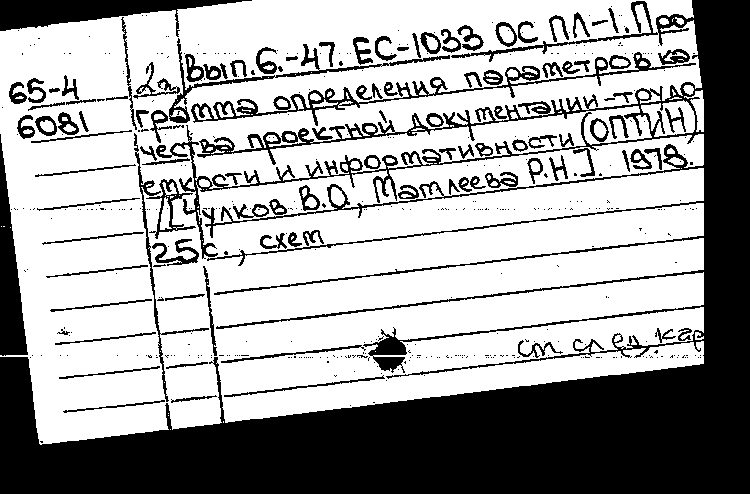 Вып.6.-47. ЕС-1033, ОС, ПЛ-1. Про-
65-4
6081
2а
грамма определения параметров ка-
чества проектной документации-трудо-
емкости и информативности (ОПТИН)
/[Чулков В.О., Матлеева Р.Н.]. 1978.
25 с., схем.
см. след. кар